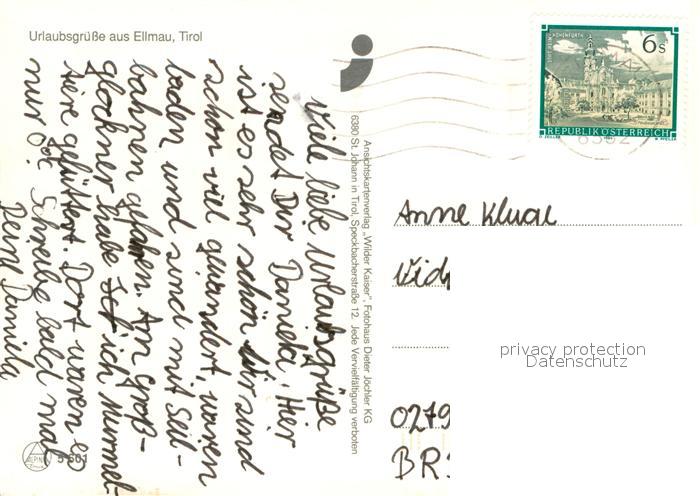 Urlaubsgrüße aus Ellmau, Tirol
Viele liebe Urlaubsgrüße
sendet Dir Daniela. Hier
ist es sehr schön. Wir sind
schon viel gewandert, waren
baden und sind mit Seil-
bahnen gefahren. Am Groß-
glockner habe ich Murmel-
tiere gefüttert. Dort waren es
nur 0°C. Schreibe bald mal
Deine Daniela
5 501
Ansichtskartenverlag „Wilder Kaiser", Fotohaus Dieter Jöchler KG
6380 St. Johann in Tirol, Speckbacherstraße 12. Jede Vervielfältigung verboten
STIFT REIN-HOHENFURTH
6 S
REPUBLIK ÖSTERREICH
Anne
0279
BR
privacy protection
Datenschutz